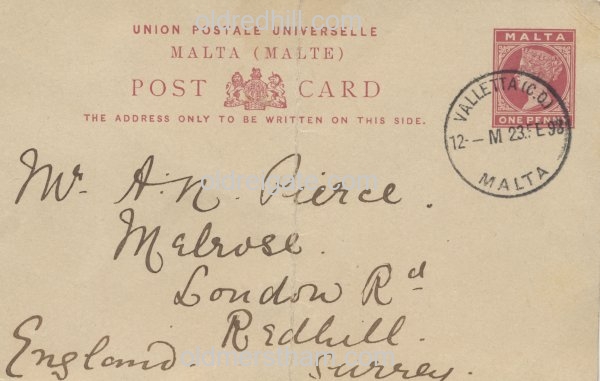 UNION POSTALE UNIVERSELLE
MALTA (MALTE)
POST CARD
THE ADDRESS ONLY TO BE WRITTEN ON THIS SIDE.
MALTA
ONE PENNY
VALLETTA (G.O)
12 - M 23 FE 98
MALTA
Mr. A. N. Pierce.
Melrose.
London Rd
Redhill.
England. Surrey.
oldredhill.com
oldredhill.com
oldmerstham.com